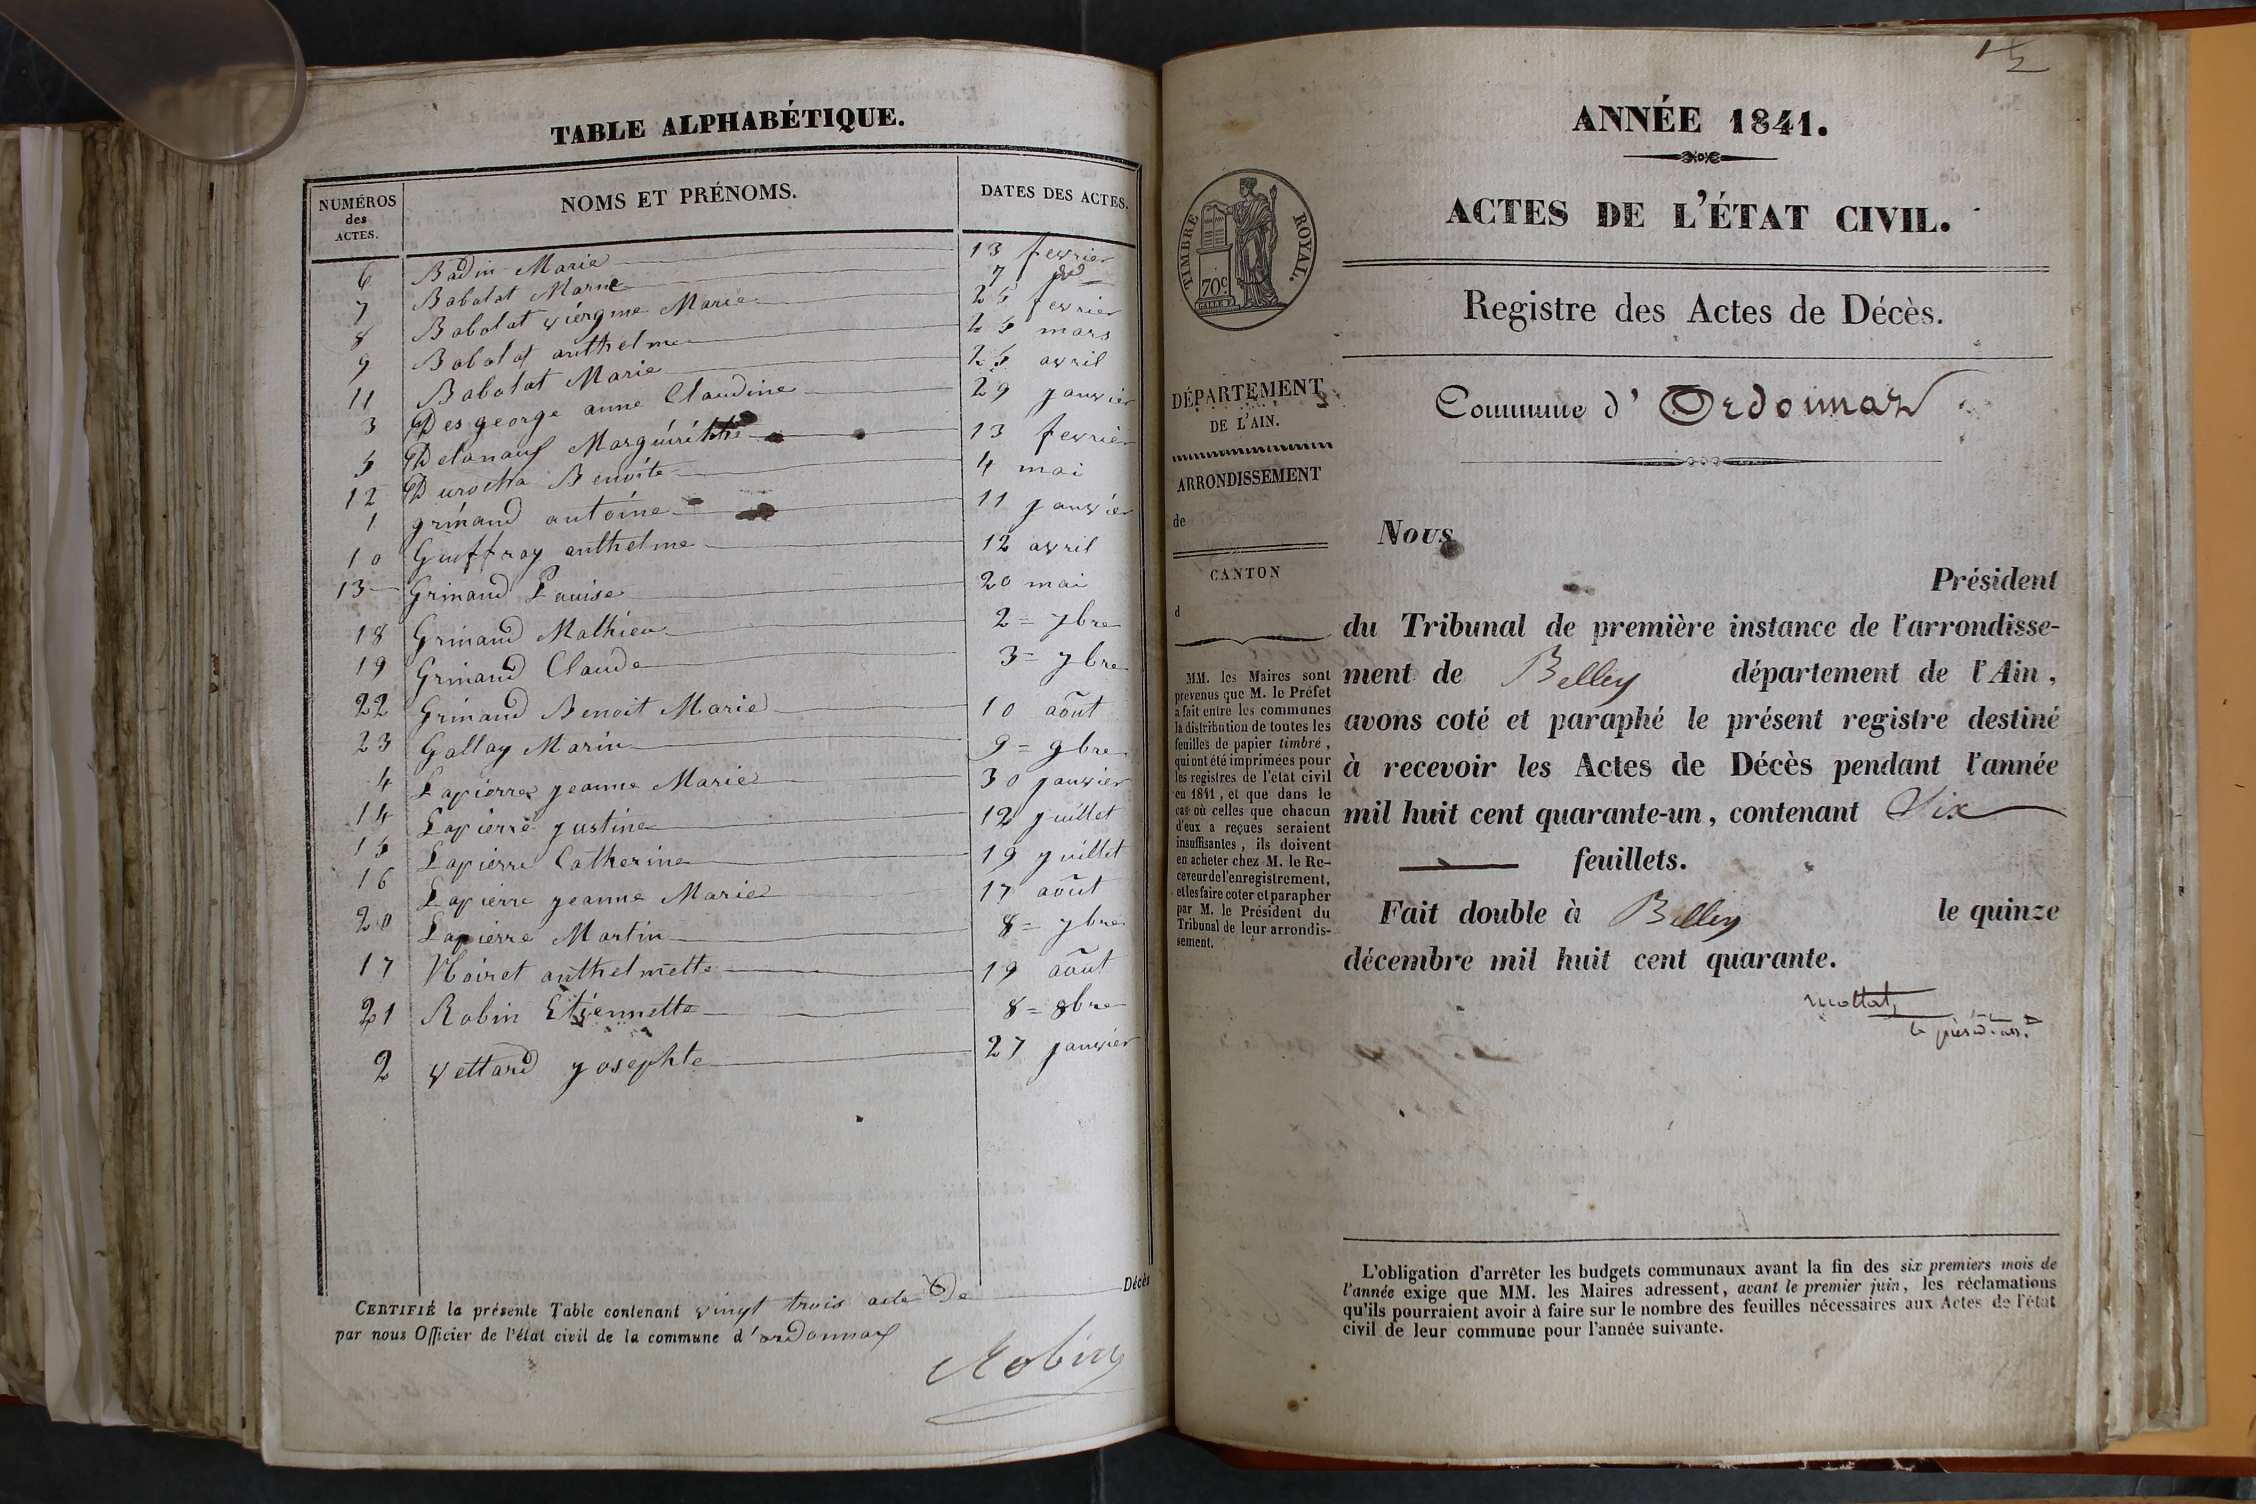 TABLE ALPHABÉTIQUE.
NUMÉROS des ACTES. NOMS ET PRÉNOMS. DATES DES ACTES.
6 Badin Marie 13 fevrier
7 Babolat Marie 7 do
8 Babolat viergme Marie 25 fevrier
9 Babolat anthelme 25 mars
11 Babolat Marie 25 avril
3 Desgeorge anne Claudine 29 janvier
5 Delanauf 13 fevrier
12 Durochat Benoite 4 mai
1 grinand antoine 11 janvier
10 Guffray anthelme 12 avril
13 Grinand Louise 20 mai
18 Grinand Mathieu 2 = 7bre
19 Grinand Claude 3 = 7bre
22 Grinand Benoit Marie 10 août
23 Gallay Marin 9 = 9bre
4 Lapierre jeanne Marie 30 janvier
14 Lapierre justine 12 juillet
15 Lapierre Catherine 19 juillet
16 Lapierre jeanne Marie 17 août
20 Lapierre Martin 8 = 7bre
17 Noiret anthelmette 19 août
21 Robin Etiennette 8 = 8bre
2 vettard josephte 27 janvier
CERTIFIÉ la présente Table contenant vingt trois acte De Décès
par nous Officier de l'état civil de la commune d'ordonnax
Robin
ANNÉE 1841.
ACTES DE L'ÉTAT CIVIL.
Registre des Actes de Décès.
Commune d' Ordonnaz
TIMBRE ROYAL.
70c
DÉPARTEMENT
DE L'AIN.
ARRONDISSEMENT
de
CANTON
d
MM. les Maires sont
prévenus que M. le Préfet
a fait entre les communes
la distribution de toutes les
feuilles de papier timbré,
qui ont été imprimées pour
les registres de l'état civil
en 1841, et que dans le
cas où celles que chacun
d'eux a reçues seraient
insuffisantes, ils doivent
en acheter chez M. le Re-
ceveur de l'enregistrement,
et les faire coter et parapher
par M. le Président du
Tribunal de leur arrondis-
sement.
Nous
Président
du Tribunal de première instance de l'arrondisse-
ment de Belley département de l'Ain,
avons coté et paraphé le présent registre destiné
à recevoir les Actes de Décès pendant l'année
mil huit cent quarante-un, contenant Six
feuillets.
Fait double à Belley le quinze
décembre mil huit cent quarante.
L'obligation d'arrêter les budgets communaux avant la fin des six premiers mois de
l'année exige que MM. les Maires adressent, avant le premier juin, les réclamations
qu'ils pourraient avoir à faire sur le nombre des feuilles nécessaires aux Actes de l'état
civil de leur commune pour l'année suivante.